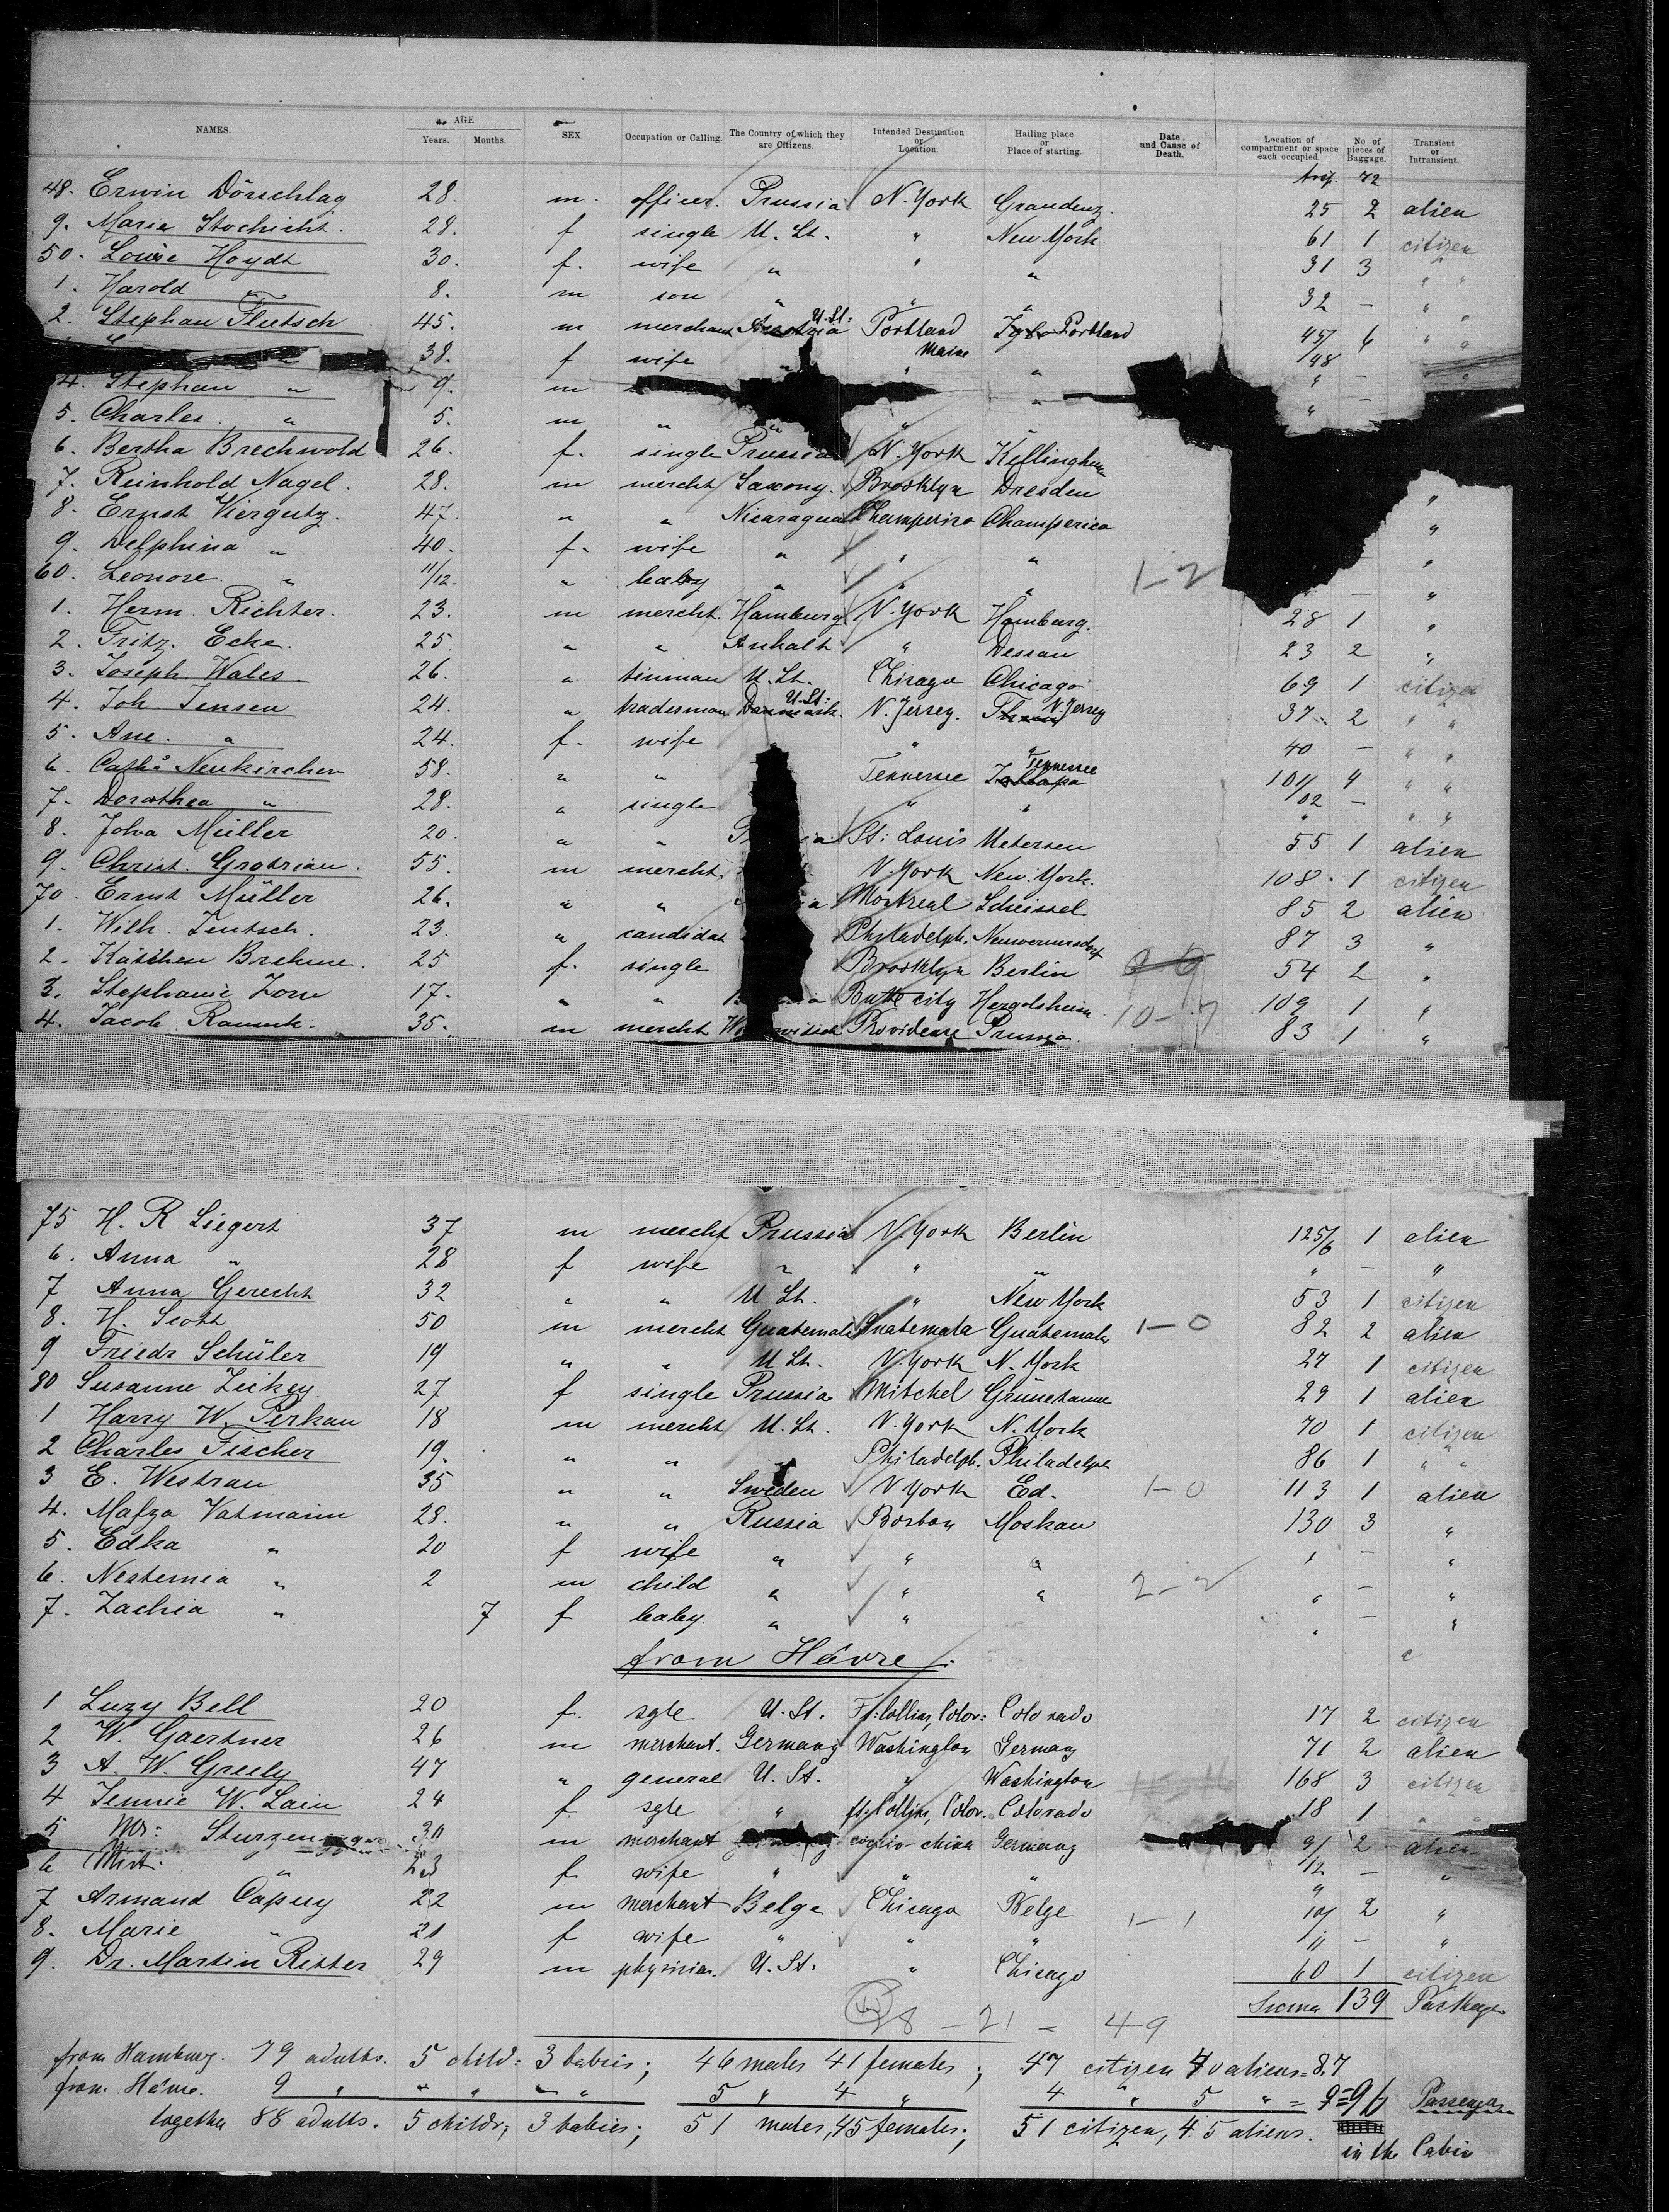 NAMES. AGE Years. Months. SEX Occupation or Calling. The Country of which they are Citizens. Intended Destination or Location. Hailing place or Place of starting. Date and Cause of Death. Location of compartment or space each occupied. No of pieces of Baggage. Transient or Intransient.
72
48. Erwin Dörschlag 28. m. officer. Prussia N. York Graudenz. 25 2 alien
9. Maria Stochicht. 28. f single U. St. " New York 61 1 citizen
50. Louise Hoydt 30. f. wife " " " 31 3 " "
1. Harold " 8. m son " " " 32 — "
2. Stephan Flutsch 45. m merchant Austria U. St: Portland Maine Portland 45/48 6 " "
38. f wife " " " —
4. Stephan " 9. m " " —
5. Charles " 5. m " " "
6. Bertha Brechwold 26. f. single Prussia N. York Kellinghusen
7. Reinhold Nagel. 28. m mercht Saxony. Brooklyn Dresden "
8. Ernst Viergutz. 47. " " Nicaragua Champerico Champerico "
9. Delphina " 40. f. wife " " " — "
60. Leonore " 11/12. " baby " " " 1-2 — "
1. Herm. Richter. 23. m mercht. Hamburg N. York Hamburg. 28 1 "
2. Fritz. Ecke. 25. " " Anhalt " Dessau 23 2 "
3. Joseph Wales 26. " tinman U. St. Chicago Chicago 69 1 citizen
4. Joh. Jensen 24. " tradesman Danmark. U. St: N. Jersey. N. Jersey 37. 2 " "
5. Ane. " 24. f. wife " " 40 — " "
6. Cath. Neukirchen 58. " " Tennersee Tennersee 101/02 4 " "
7. Dorothea " 28. " single " " " — " "
8. Johα Müller 20. " " St: Louis Uetersen 55 1 alien
9. Christ. Grotrian. 55. m mercht. N. York New. York. 108. 1 citizen
70. Ernst Müller 26. " " Montreal Scheissel 85 2 alien
1. Wilh. Jentsch. 23. " candidat Philadelph. 87 3 "
2. Käthchen Brehme. 25 f. single Brooklyn Berlin 54 2 "
3. Stephanie Zorn 17. " " Butte city Hergolsheim 10-7 109 1 "
4. Jacob 35. m mercht Providence Prussia. 83 1 "
75 H. R Siegert 37 m mercht Prussia N. York Berlin 125/6 1 alien
6. Anna " 28 f wife " " " " — "
7 Anna Gerecht 32 " " U St. " New York 53 1 citizen
8. H. Scott 50 m mercht Guatemala Guatemala Guatemala 1-0 82 2 alien
9 Friedr Schüler 19 " " U St. N. York N. York 27 1 citizen
80 Susanne Zickey 27 f single Prussia Mitchel Grünetanne 29 1 alien
1 Harry W. Perkau 18 m mercht U. St. N. York N. York 70 1 citizen
2 Charles Fischer 19. " " " Philadelph. Philadelph 86 1 " "
3 E. Westrau 35 " " Sweden N York Ed. 1-0 113 1 alien
4. Mafza Vatmann 28. " " Russia Boston Moskau 130 3 "
5. Edka " 20 f wife " " " " — "
6. Nestemia " 2 m child " " " 2-2 " — "
7. Zachia " 7 f baby. " " " — "
from Hâvre.
1 Luzy Bell 20 f. sgle U. St. Ft: Collins, Color: Colorado 17 2 citizen
2 W. Gaertner 26 m merchant. Germany Washington Germany 71 2 alien
3 A. W. Greely 47 " general U. St. " Washington 168 3 citizen
4 Jennie W. Lain 24 f. sgle " ft: Collins, Color. Colorado 18 1 " "
5 Mr: 30 m merchant cochin china Germany 9/12 2 alien
6 " 23 f. wife " " " " — "
7 Armand Capuy 22 m merchant Belge Chicago Belge 1-1 10/11 2 "
8. Marie " 21 f wife " " " — "
9. Dr. Martin Ritter 29 m physician. U. St. " Chicago 60 1 citizen
Suma 139 Packages
28 - 21 = 49
from Hamburg. 79 adults. 5 child: 3 babies; 46 males 41 females; 47 citizen 40 aliens = 87
from Hâvre. 9 " " " " " 5 " 4 " 4 " 5 " = 9 = 96 Passengers
together 88 adults. 5 childr, 3 babies; 51 males, 45 females; 51 citizen, 45 aliens. in the Cabin